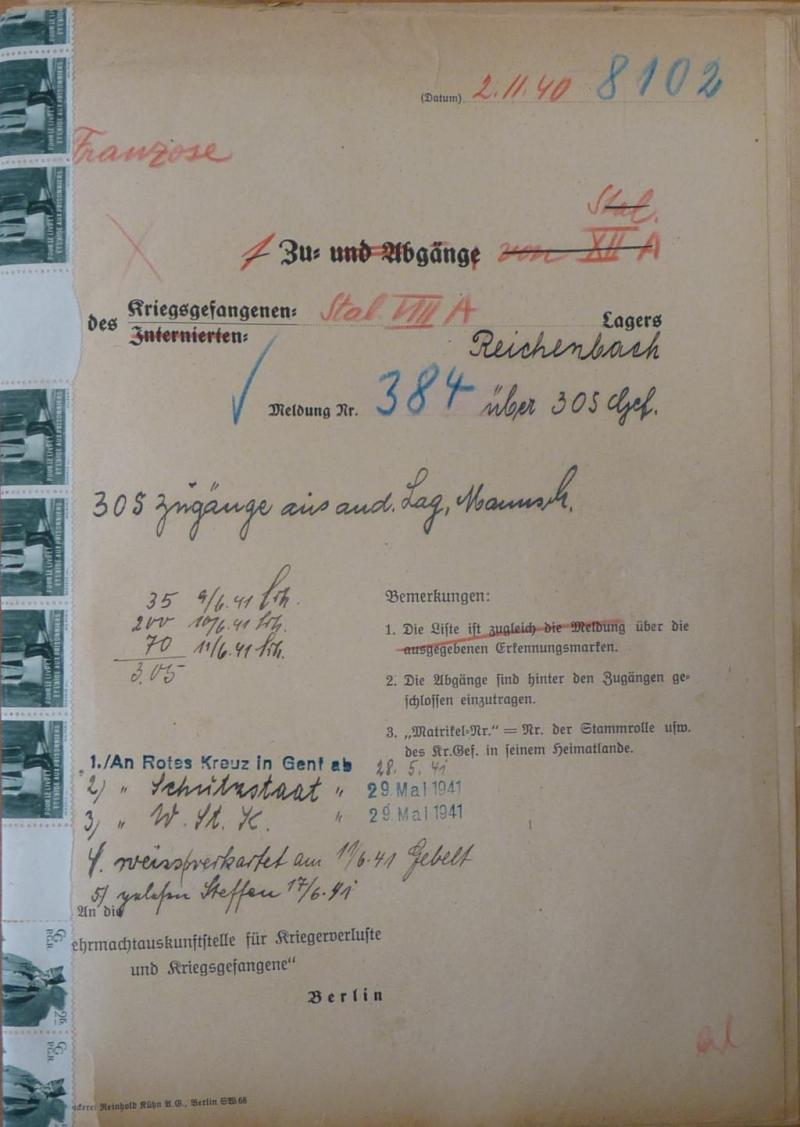 (Datum) 2.11.40 8102
Franzose
Stal.
1 Zu= und Abgänge von XII A
des Kriegsgefangenen= Stal VIII A Lagers
Internierten=
Reichenbach
Meldung Nr. 384 über 305 Gef.
305 Zugänge aus and. Lag, Mannsch.
35 9/6.41
200 10/6.41
70 11/6.41
305
Bemerkungen:
1. Die Liste ist zugleich die Meldung über die
ausgegebenen Erkennungsmarken.
2. Die Abgänge sind hinter den Zugängen ge=
schlossen einzutragen.
3. „Matrikel=Nr.“ = Nr. der Stammrolle usw.
des Kr.Gef. in seinem Heimatlande.
1./An Rotes Kreuz in Genf ab 28. 5. 41
2) " Schutzstaat " 29. Mai 1941
3) " W. St. K. " 29. Mai 1941
4. weissverkartet am 17/6.41 Gebelt
5) gelesen Steffen 17/6.41
An die
ehrmachtauskunftstelle für Kriegerverluste
und Kriegsgefangene“
Berlin
ckerei Reinhold Kühn A.G., Berlin SW 68
POUR LE LIVRE
ET L'AIDE AUX PRISONNIERS